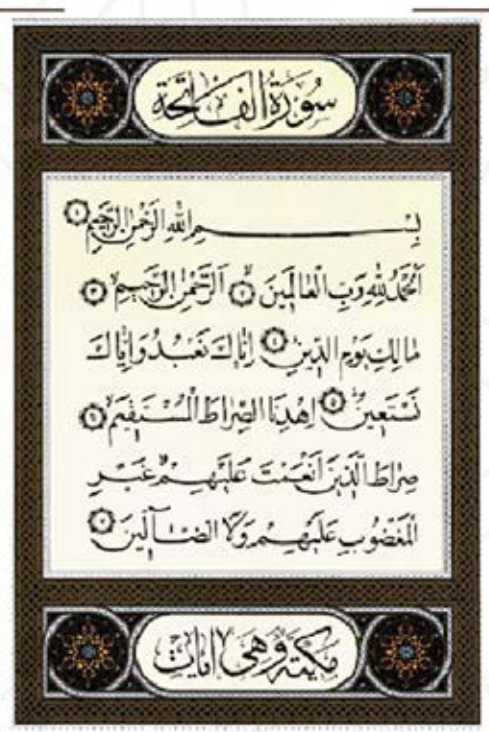 سُورَةُ الْفَاتِحَةِ
بِسْمِ اللّٰهِ الرَّحْمٰنِ الرَّحِيمِ ۝١
اَلْحَمْدُ لِلّٰهِ رَبِّ الْعَالَمِينَ ۝٢ اَلرَّحْمٰنِ الرَّحِيمِ ۝٣
مَالِكِ يَوْمِ الدِّينِ ۝٤ اِيَّاكَ نَعْبُدُ وَاِيَّاكَ
نَسْتَعِينُ ۝٥ اِهْدِنَا الصِّرَاطَ الْمُسْتَقِيمَ ۝٦
صِرَاطَ الَّذِينَ اَنْعَمْتَ عَلَيْهِمْ غَيْرِ
الْمَغْضُوبِ عَلَيْهِمْ وَلَا الضَّٓالِّينَ ۝٧
مَكِّيَّةٌ وَهِيَ ٧ اٰيَاتٍ